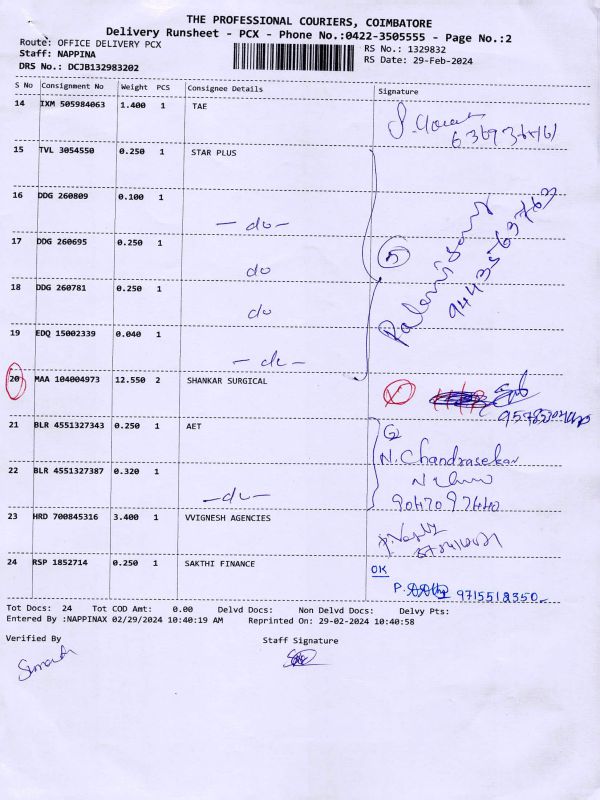 THE PROFESSIONAL COURIERS, COIMBATORE
Delivery Runsheet - PCX - Phone No.:0422-3505555 - Page No.:2
Route: OFFICE DELIVERY PCX
RS No.: 1329832
Staff: NAPPINA
RS Date: 29-Feb-2024
DRS No.: DCJB132983202
S No Consignment No Weight PCS Consignee Details Signature
14 IXM 505984063 1.400 1 TAE
15 TVL 3054550 0.250 1 STAR PLUS
16 DDG 260809 0.100 1 -do-
17 DDG 260695 0.250 1 do
5
18 DDG 260781 0.250 1 do
19 EDQ 15002339 0.040 1 -do-
20 MAA 104004973 12.550 2 SHANKAR SURGICAL
21 BLR 4551327343 0.250 1 AET
N. Chandrasekar
22 BLR 4551327387 0.320 1 -do-
23 HRD 700845316 3.400 1 VVIGNESH AGENCIES
24 RSP 1852714 0.250 1 SAKTHI FINANCE
OK
Tot Docs: 24 Tot COD Amt: 0.00 Delvd Docs: Non Delvd Docs: Delvy Pts:
Entered By :NAPPINAX 02/29/2024 10:40:19 AM Reprinted On: 29-02-2024 10:40:58
Verified By Staff Signature